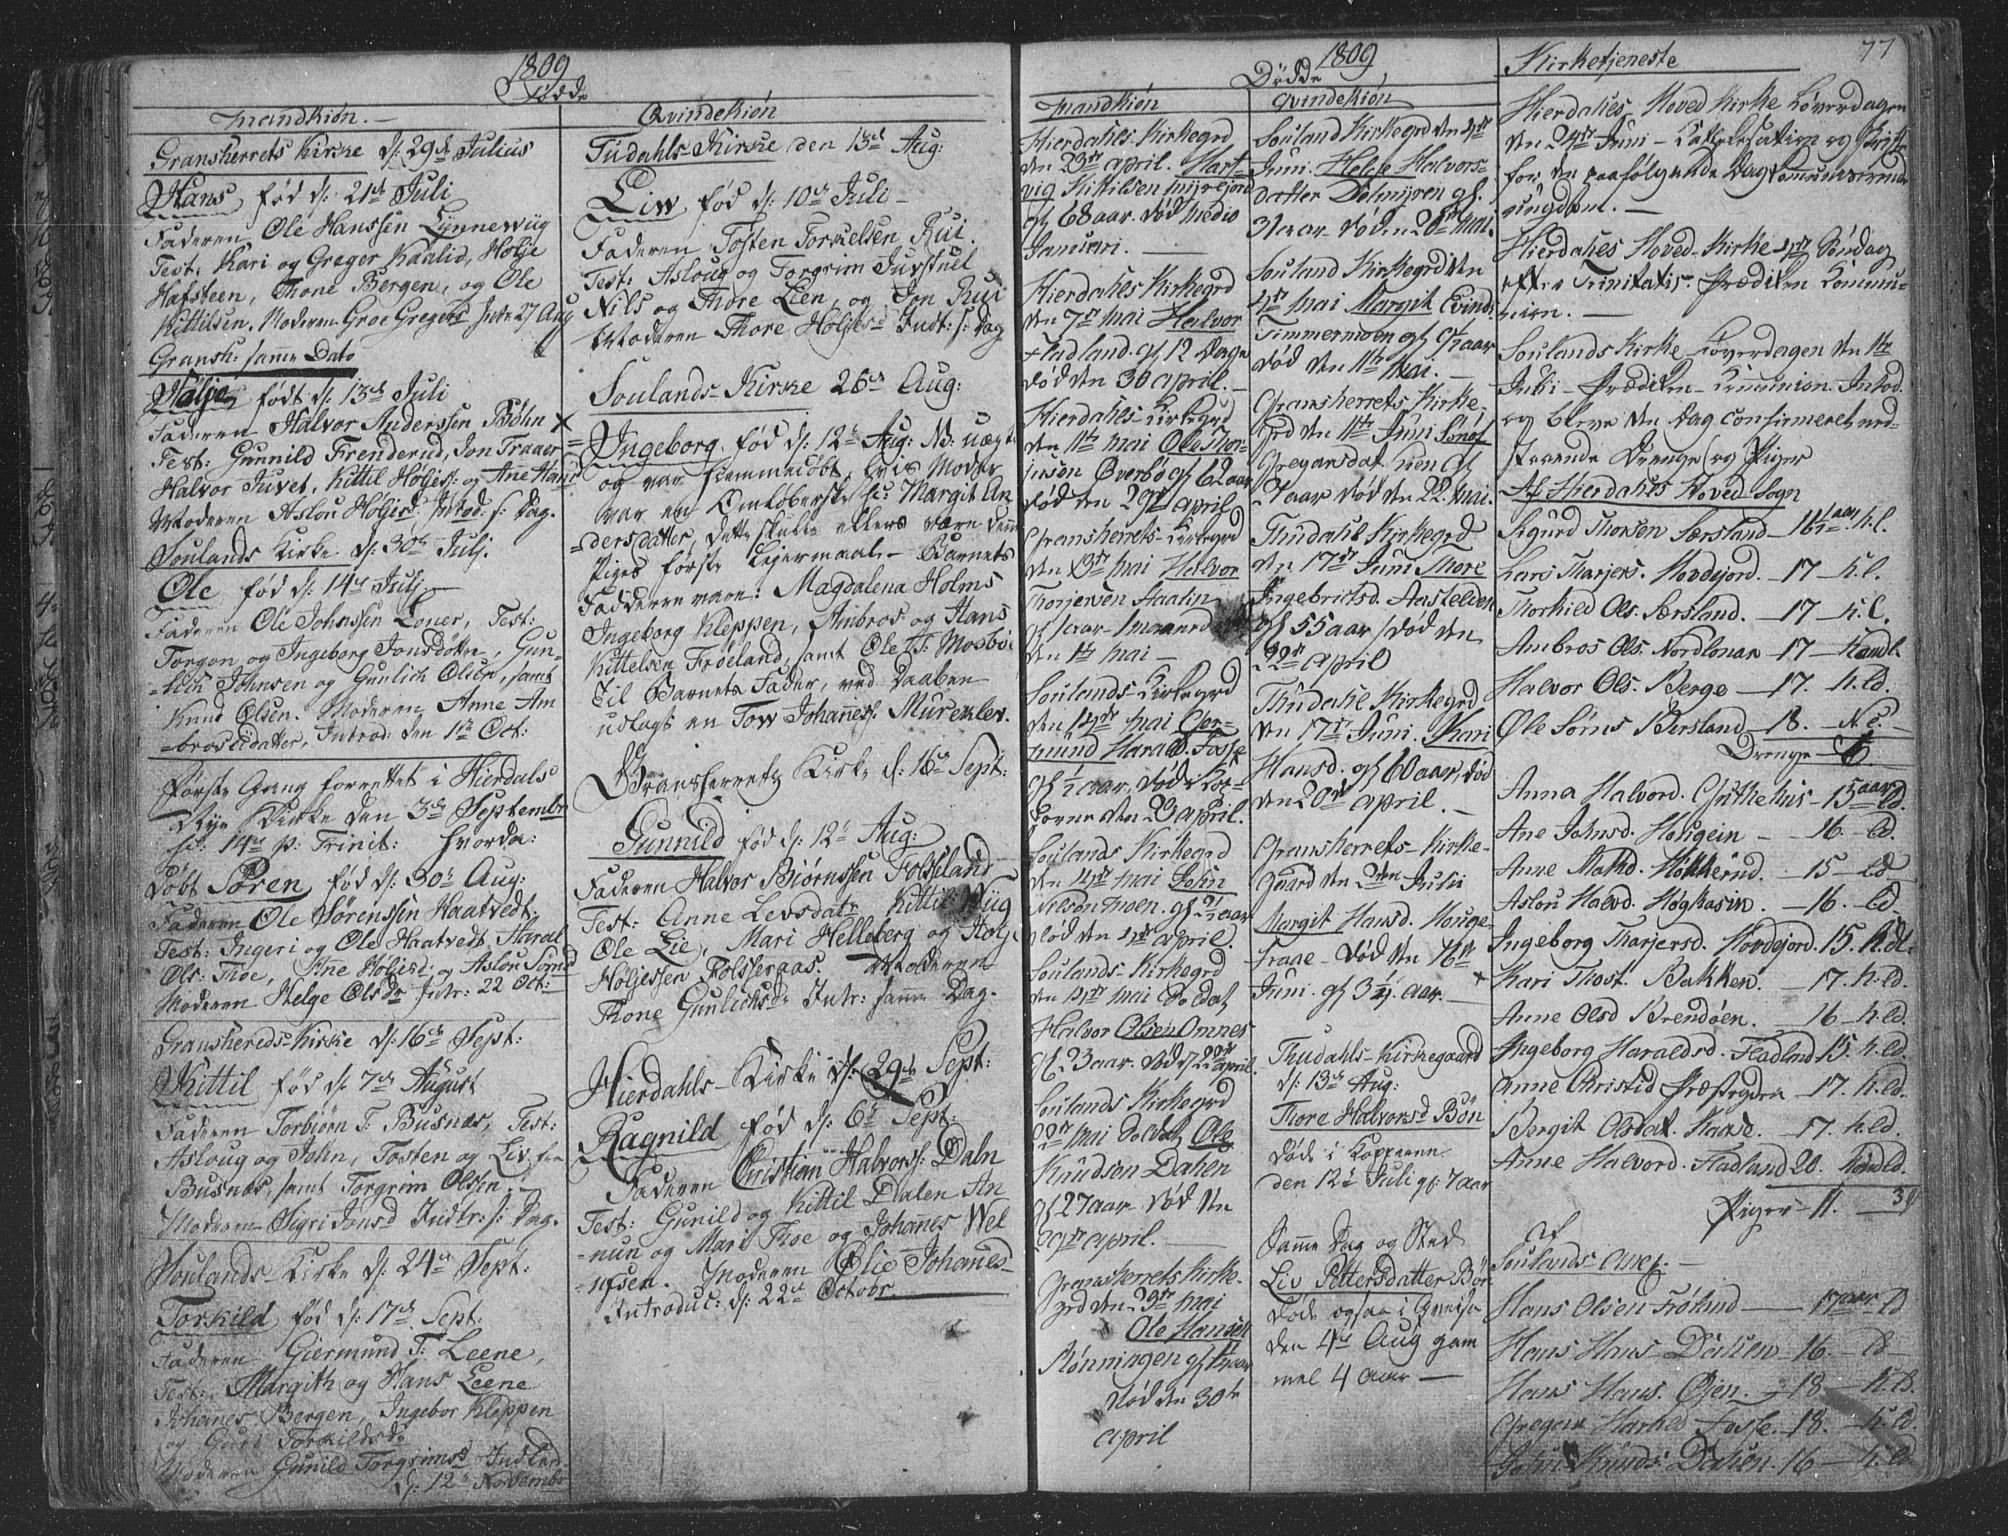 1809
Fødde
Mandkiøn.
Gransherrets Kirke d: 29de Julius
Hans, fød d: 21de Juli
Faderen Ole Hanssen Lynnewiig
Test: Kari og Greger Kaalid, Holje
Hafsteen, Thone Bergen, og Ole
Kittilsen. Moderen Groe Gregersd Intr: 27 Aug
Gransh: samme Dato
Holje født d: 13de Juli
Faderen Halvor Anderssen Bøhn
Test: Gunnild Frenderud, Jon Traaer
Halvor Juvet, Kittil Høljess: og Anne Hans
Moderen Aslou Høljesd. Introd. s: Dag.
Soulands Kirke d: 30te Julj.
Ole fød d: 14de Julj
Faderen Ole Johnssen Loner, Test:
Torgon og Ingeborg Jonsdøttre, Gun-
-lich Johnsen og Gunlich Olsen, samt
Knud Olsen. Moderen Anne Am
-brosidatter, Introd: den 1te Oct:
Første Gang forrettet i Hierdals
Nye Kirke den 3de September
14de p: Trinit: hvorda:
døbt Søren, fød d: 30te Aug:
Faderen Ole Sørenssen Haatvedt.
Test: Ingeri og Ole Haatvedt, Haral
Ols: Thoe, Anne Høljesd: og Aslou Sørnsd
Moderen Helge Olsdr Intr: 22 Oct:
Gransherreds-Kirke d: 16de Sept:
Kittil fød d: 7de August
Faderen Torbiørn T. Busnæs, Test:
Asloug og John, Tosten og Liv fra
Busnæs, samt Torgrim Olsen
Moderen Sigri Jonsd Indtr: s: Dag.
Soulands-Kirke d: 24de Sept:
Torkild fød d: 17de Sept:
Faderen Giermund T: Leene,
Test: Margith og Hans Leene
Johannes Bergen, Ingebor Kleppen
og Guri Torkildsdr
Moderen Gunild Torgrimsd Indled
d: 12te Novembr
Qvindekiøn
Tudahls Kirke den 13de Aug:
Liv fød d: 10de Juli
Faderen Tosten Torkelsen Rui.
Test: Asloug og Torgrim Juvstuil
Nils og Thore Lien, og Jon Rui
Moderen Thore Holjesd Indt: s: Dag
Soulands-Kirke 26de Aug:
Ingeborg fød d: 12te Aug: NB: uægt
og var hiemmedøbt, hvis Moder
var en Omløberske Margit An
-dersdatter, dette skulle ellers være denne
Piges første Lejermaal - Barnets
Faddere vare: Magdalena Holms
Ingeborg Kleppen, Ambros og Hans
Kittelsen Frøeland, samt Ole T: Mosbøe
Til Barnets Fader, ved Daaben
udlagt en Tow Johanness: Mureklev.
Gransherretz Kirke d: 16de Sept:
Gunnild fød d: 12te Aug:
Faderen Halvor Biørnssen Folseland
Test: Anne Levsdatr Kittil Wiig
Ole Lie, Mari Helleberg og Holje
Holjessen Folsseraas. Moderen
Thone Gunlichsdr Intr: samme Dag.
Hierdahls-Kirke d: 29de Sept:
Ragnild fød d: 6te Sept:
Faderen Christian Halvorss: Daln
Test: Gunild og Kittil Dalen An
-nun og Mari Thoe og Johannes Wel
Moderen Olie Johanes-
Introduc: d: 22de Octobr.
1809
Dødde
Mandkiøn
Hierdahls Kirkegrd
den 23de april. Hart-
vig Kittilsen Myrejord
gl 68 aar. død medio
Januari.
Hierdahls Kirkegrd
den 7de mai Halvor
Fladland. gl 12 Dage
død den 30 april.
Hierdahls-Kirkegrd
den 11te mai Ole Thor-
insøn Overbø gl 62 aar
død den 29de april
Gransherrets-Kirkegrd
den mai Halvor
Thorjersen Haalin
gl 1 aar 1 maaned
den 1te mai
Soulands-Kirkegrd
den 14de mai Ger-
mund Harald. Fosse
gl 1/2 aar, død i Kop-
perne den 23 april.
Soulands Kirkegrd
den mai John
Nilsen moen. gl aar
død den april.
Soulands-Kirkegrd
den mai Soldat
Halvor Olsen Omnes
gl 23 aar død 22de april.
Soulands Kirkegrd
mai Soldat Ole
Knudsen Dalen
gl 27 aar død den
april.
Gransherrets Kirke-
grd den mai
Ole Hansen
Rønningen gl aar
død den 30te
april
Qvindekiøn
Souland Kirkegrd den
Juni. Helje Halvors-
datter Dalmyren gl.
3 aar død den 20de mai.
Souland Kirkegrd den
mai Margit Evinds
Timmermoen gl aar
død den 11te mai.
Gransherrets Kirke-
grd den 11te Juni
Gregarsdat. Lien gl
2 aar død den 22. mai.
Thudahl Kirkegrd
den 17de Juni Thore
Ingebrictsd. Aaskelden
gl 55 aar død den
22de april
Thudahl Kirkegrd
den 17de Juni. Kari
Hansd. gl 60 aar, død
den 20de april.
Gransherrets-Kirke-
gaard den 2den Julii
Margit Hansd. Houge-
fraae - død den 16de
Juni. gl aar.
Thudahls-Kirkegaard
d: 13de Aug:
Thore Halvorsd Bøn
døde i Kopperne
den 12te Juli gl: 7 aar
Samme Dag og Sted
Liv Pettersdatter Bøn
døde ogsaa i
den 4de Aug gam
mel 4 aar
Kirketjeneste
77
Hierdahls Hoved Kirke Løverdagen
den 24de Juni - Catechisation og Skrifte
for de paafølgende Dag Communicerende
ungdom.
Hierdahls Hoved-Kirke Søndag
efter Trinitatis - Prædiken Commu-
nion.
Soulands Kirke Løverdagen den 1te
Juli - Prædiken - Communion. Introd.
og bleve den Dag confirmeret ned-
staaende Drenge og Piger
Af Hierdahls Hoved Sogn
Sigurd Thorsen Særsland - 16½ aar k.l.
Lars Tharjers. Hovdejord - 17 - k.l.
Thorkild Ols. Særsland. - 17 - k.l.
Ambros Ols. Nordlonar - 17 - Kundl.
Halvor Ols. Berge - 17. k.ld.
Ole Sørns Bersland - 18. -
Drenge 6
Anna Halvord. Githehus - 15 aar ld.
Ane Johnsd. Hougein - 16. - ld.
Anne Hokkerud. - 15 - ld
Aslou Halvd. Høgkasin. - 16. ld.
Ingeborg Tharjersd. Hovdejord. 15. k.dl.
Kari Thost. Bakken. - 17. k.ld.
Anne Olsd Brendøen. - 16 - k.ld.
Ingeborg Haraldsd. Fladland 15. k.ld.
Anne Christid Præstegden - 17. k.ld.
Bergit Olsdat. Haasd. - 17. k.ld.
Anne Halvord. Fladland 20. kundld.
Piger - 11.
af
Soulands Anex.
Hans Olsen Frølnd - 17 aar ld
Hans Hans - Dahlen - 16 - ld
Hans Hans. Øjen. - 18 - k.ld.
Gregar Harald Fosse. 18. - k.ld
John Knuds. Dahlen. 16 - k.ld